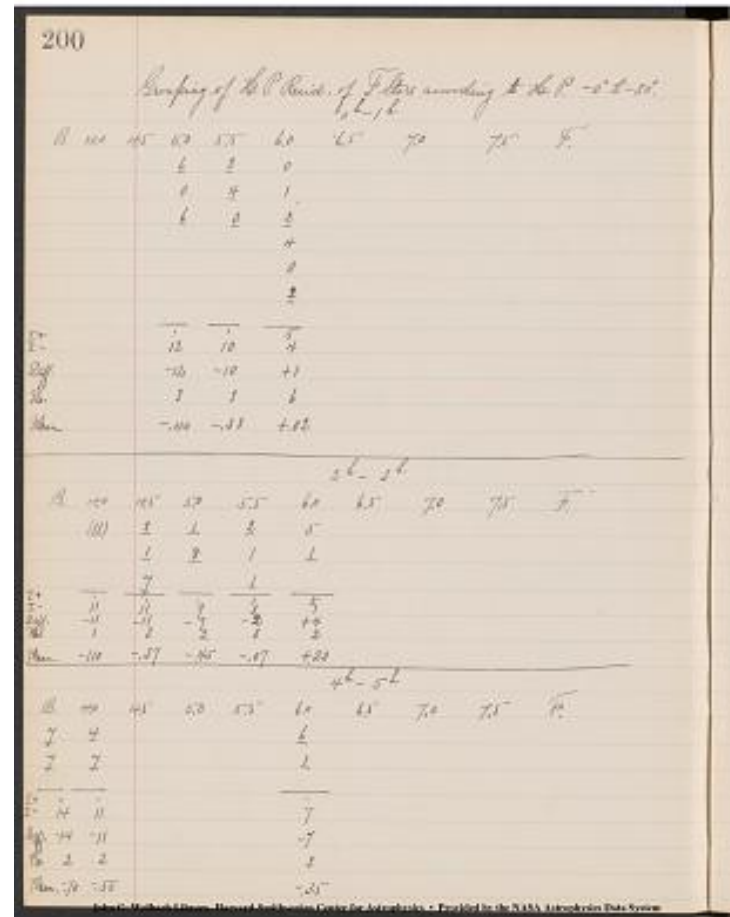 200
Grouping of H P Resid. of F Stars according to H P. -0° to -30°.
0h - 1h
B 4.0 4.5 5.0 5.5 6.0 6.5 7.0 7.5 F.
6 2 0
0 4 1
6
4
0
2
Σ+ 5
Σ- 12 10 4
Diff. -12 -10 +1
No. 3 3 6
Mean -.40 -.33 +.02
2h - 3h
B 4.0 4.5 5.0 5.5 6.0 6.5 7.0 7.5 F.
(11) 2 5
1 1
7
Σ+
Σ- 11 11 9
Diff. -11 -11 -9 -2 +4
No. 1 3 2 3 2
Mean -110 -.37 -.45 -.07 +20
4h - 5h
B 4.0 4.5 5.0 5.5 6.0 6.5 7.0 7.5 F.
7 4 6
7 7 1
Σ+
Σ- 14 11 7
Diff. -14 -11 -7
No. 2 2 2
Mean -.70 -.55 -.35
John G. Wolbach Library, Harvard-Smithsonian Center for Astrophysics • Provided by the NASA Astrophysics Data System